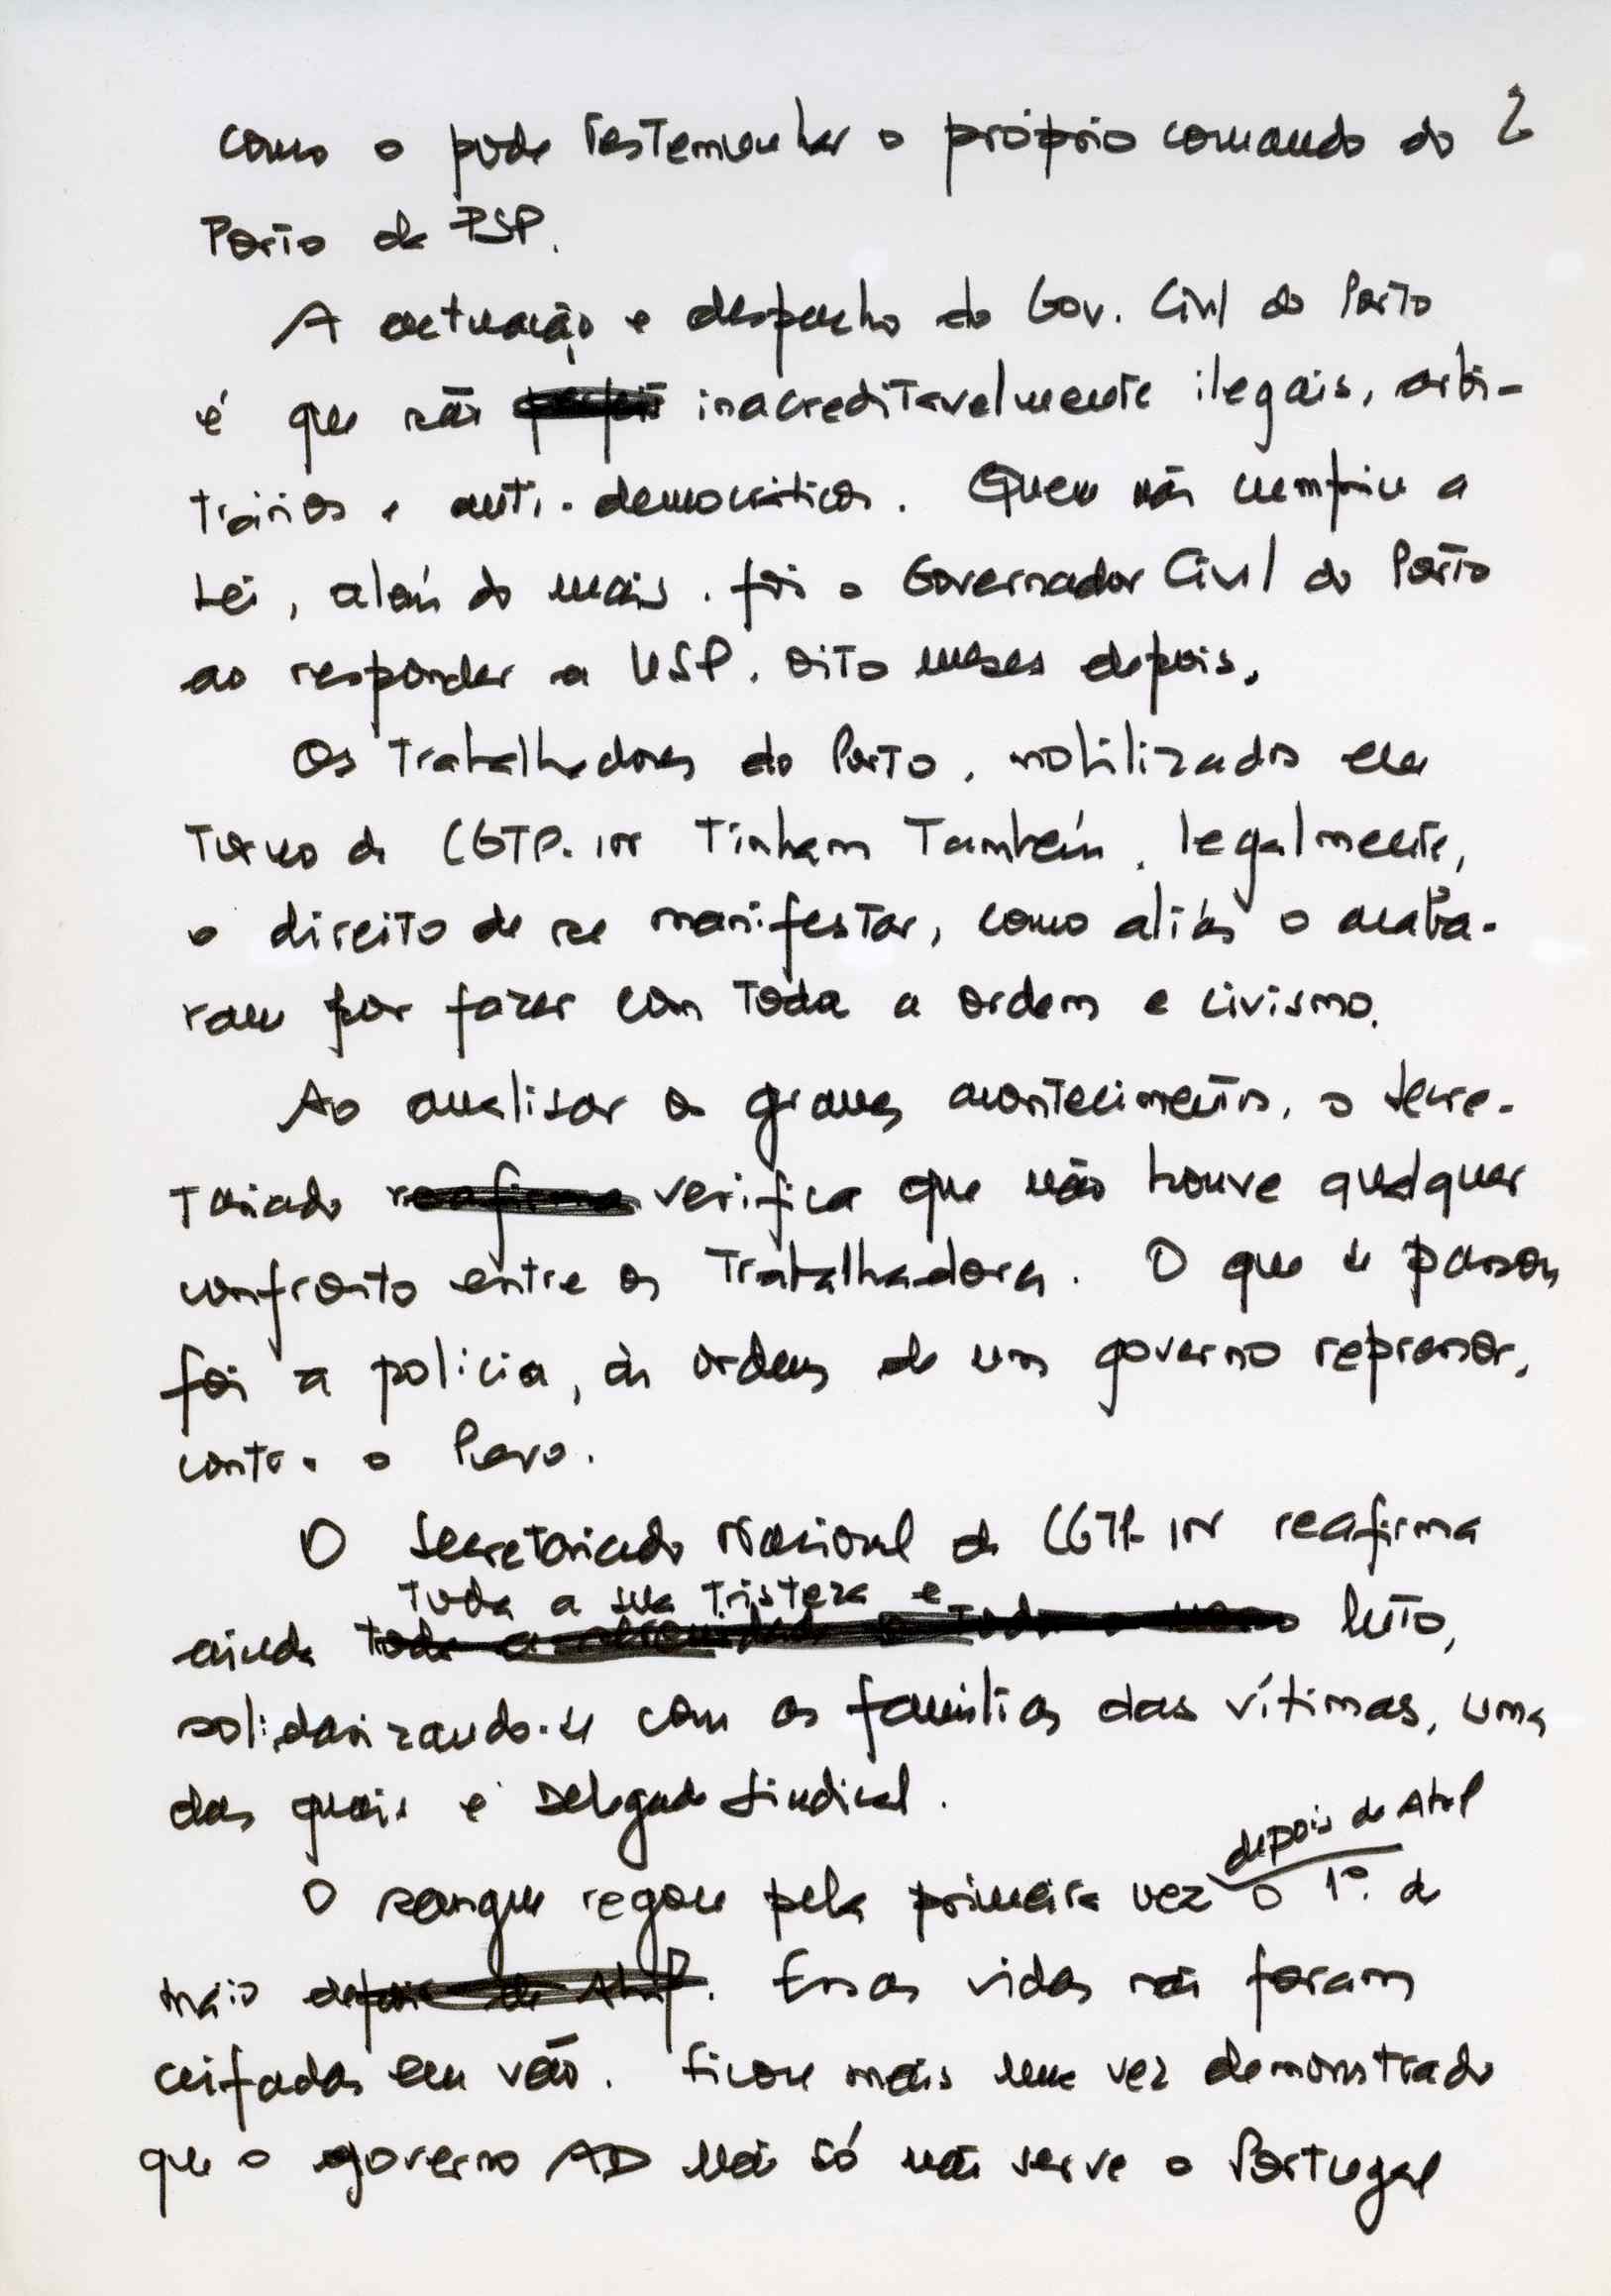 2
como o pode testemunhar o próprio comando do
Porto da PSP.
A actuação e despacho do Gov. Civil do Porto
é que são inacreditavelmente ilegais, arbi-
trários e anti-democráticos. Quem não cumpriu a
Lei, além do mais, foi o Governador Civil do Porto
ao responder a USP, oito meses depois.
Os trabalhadores do Porto, mobilizados em
torno da CGTP-IN tinham também, legalmente,
o direito de se manifestar, como aliás o acaba-
ram por fazer com toda a ordem e civismo.
Ao analisar os graves acontecimentos, o Secre-
tariado reafirma verifica que não houve qualquer
confronto entre os trabalhadores. O que se passou
foi a polícia, às ordens de um governo repressor,
contra o Povo.
O Secretariado Nacional da CGTP-IN reafirma
toda a sua tristeza e
ainda toda a luto,
solidarizando-se com as famílias das vítimas, uma
das quais é Delegado Sindical.
depois de Abril
O sangue regou pela primeira vez o 1º. de
Maio depois de Abril. Essas vidas não foram
ceifadas em vão. Ficou mais uma vez demonstrado
que o governo AD não só não serve o Portugal